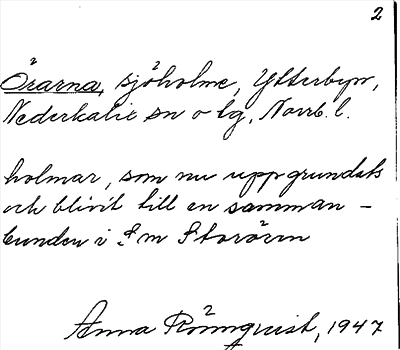 2
Örarna, sjöholme, Ytterbyn,
Nederkalix sn o tg, Norrb. l.
holmar, som nu uppgrundats
och blivit till en samman-
bunden i f m Storörn
Anna Rönnquist, 1947